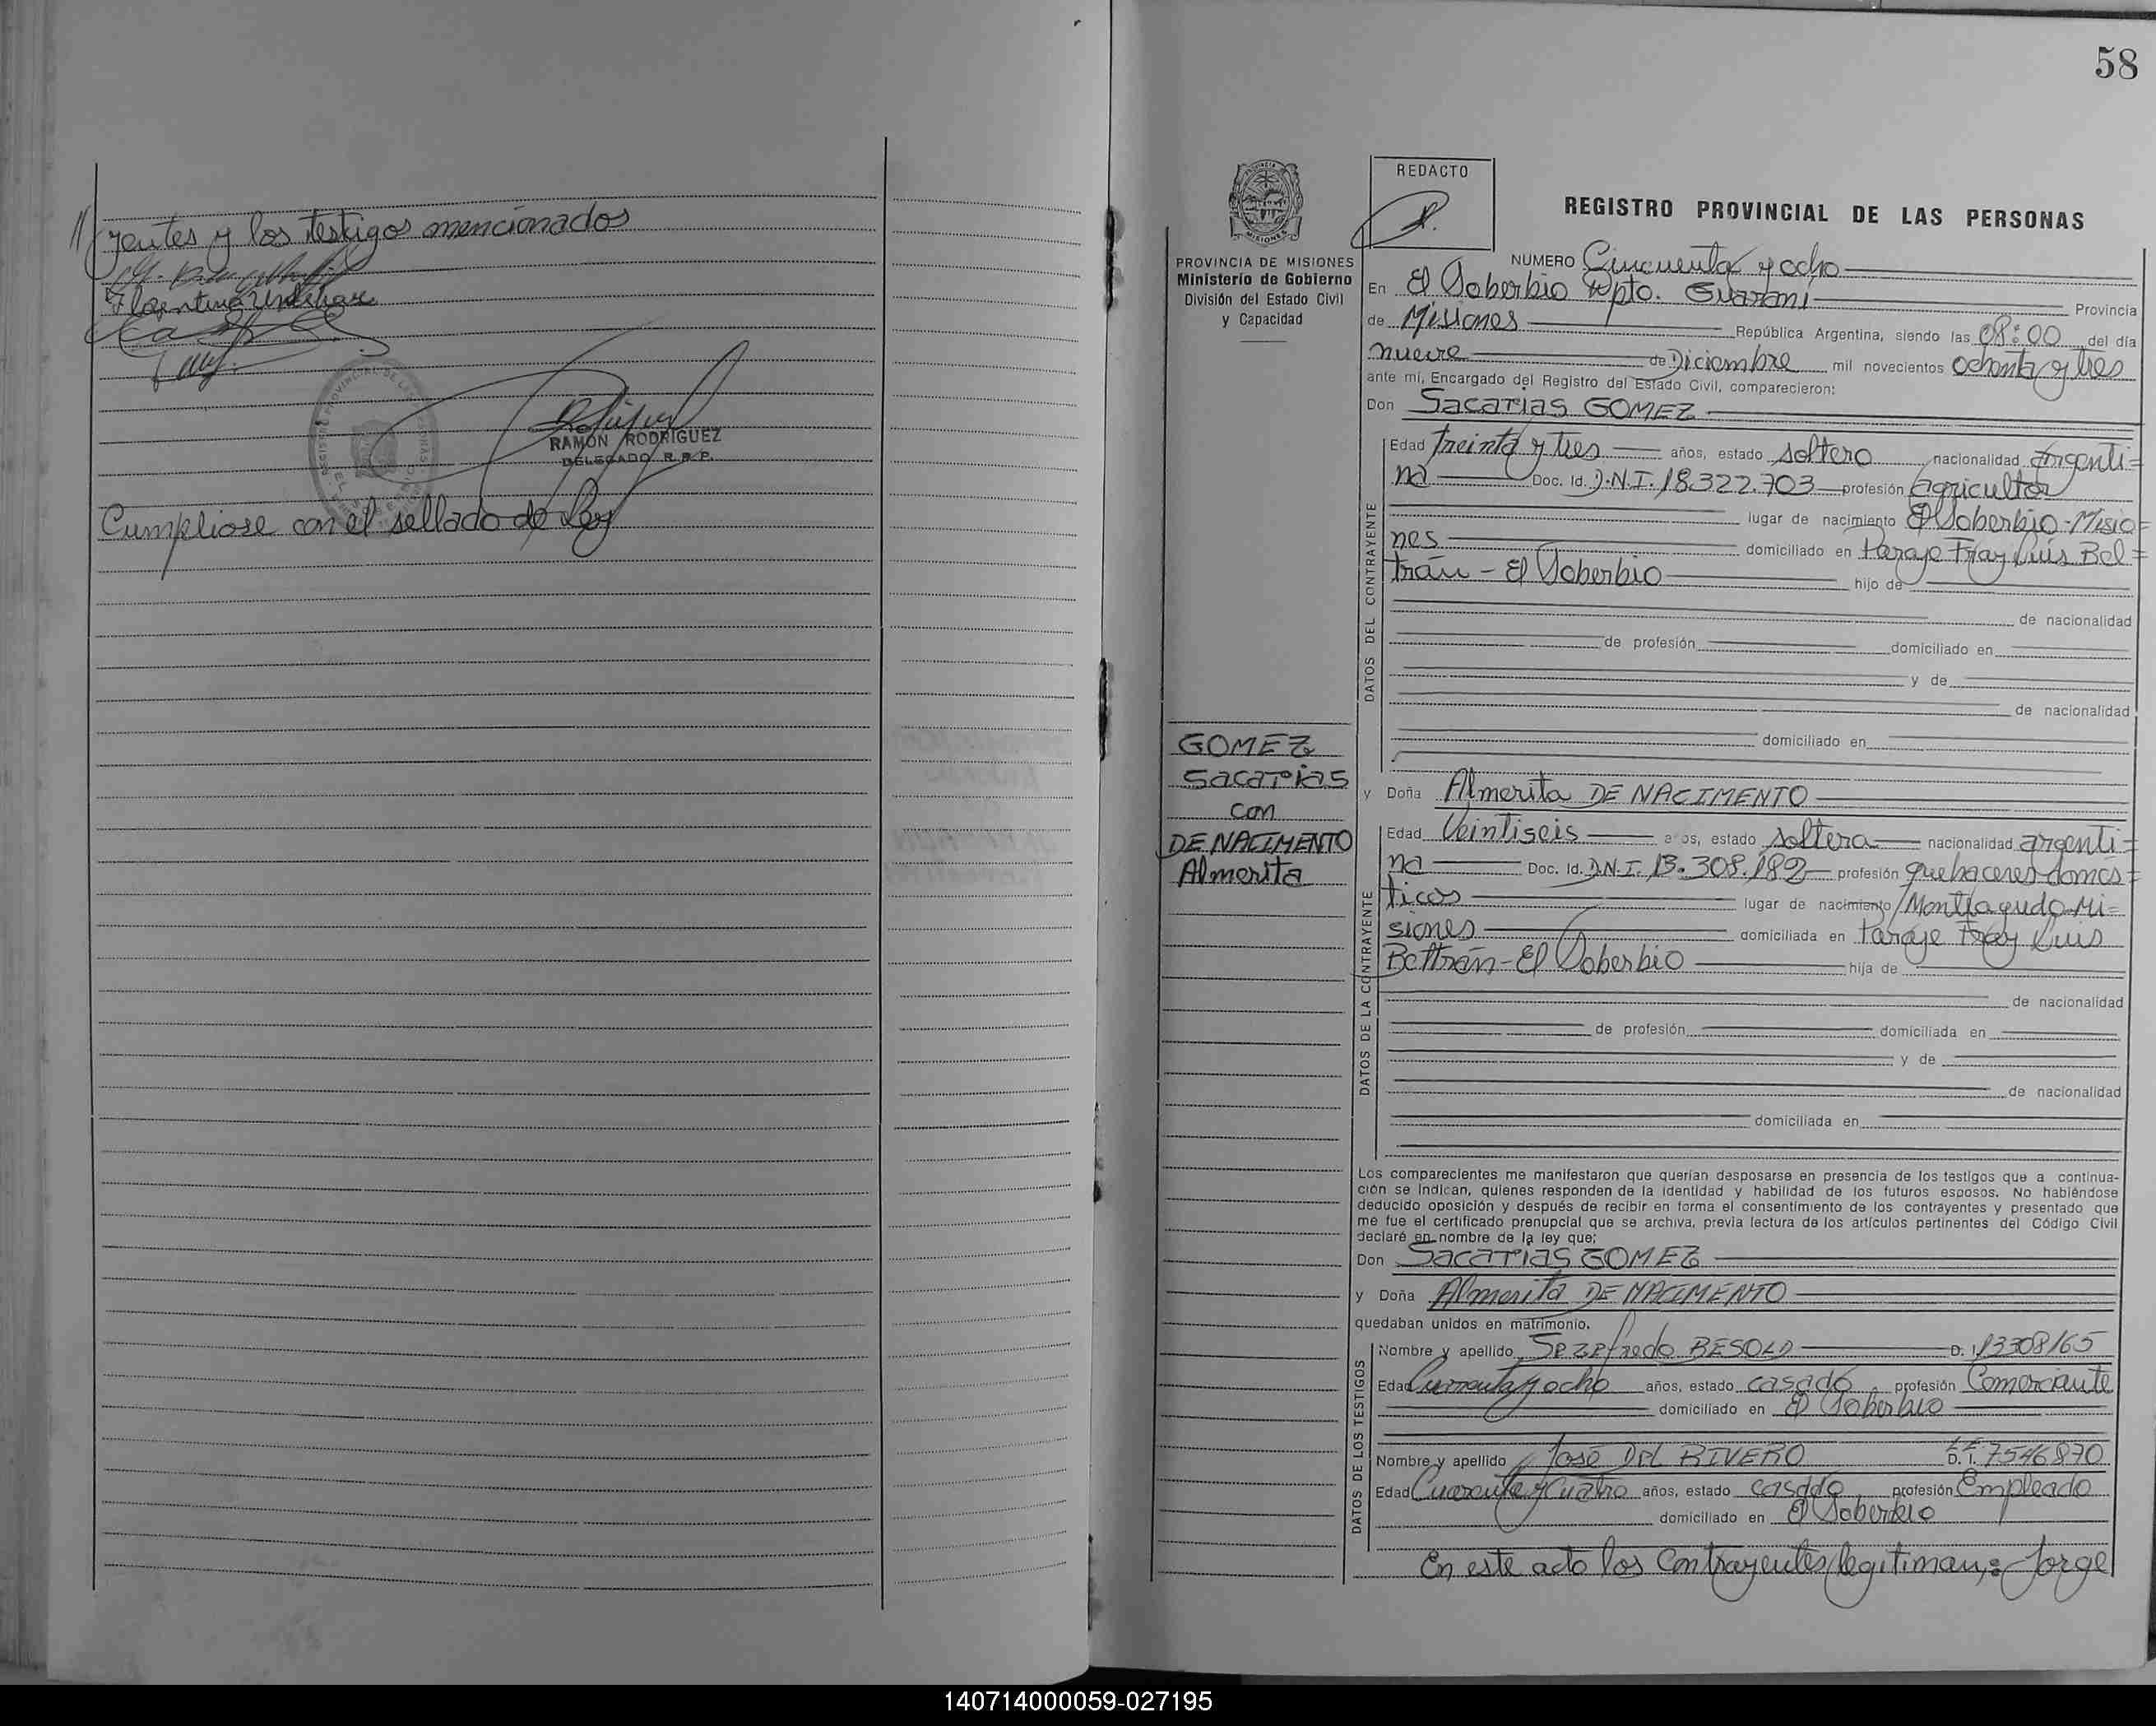 // yentes y los testigos mencionados
Florentina
RAMÓN RODRIGUEZ
DELEGADO R. P. P.
Cumpliose con el sellado de Ley
58
PROVINCIA DE MISIONES
Ministerio de Gobierno
División del Estado Civil
y Capacidad
REDACTO
REGISTRO PROVINCIAL DE LAS PERSONAS
NUMERO Cincuenta y ocho
En El Soberbio Dpto. Guaraní Provincia
de Misiones República Argentina, siendo las 08:00 del día
nueve de Diciembre mil novecientos ochenta y tres
ante mí, Encargado del Registro del Estado Civil, comparecieron:
Don Sacarias GOMEZ
DATOS DEL CONTRAYENTE
Edad treinta y tres años, estado soltero nacionalidad argenti=
na Doc. Id. D.N.I. 18.322.703 profesión agricultor
lugar de nacimiento El Soberbio-Misio=
nes domiciliado en Paraje Fray Luis Bel=
trán - El Soberbio hijo de
de nacionalidad
de profesión domiciliado en
y de
de nacionalidad
domiciliado en
GOMEZ
Sacarias
con
DE NACIMENTO
Almerita
y Doña Almerita DE NACIMENTO
DATOS DE LA CONTRAYENTE
Edad Veintiseis años, estado soltera nacionalidad argenti=
na Doc. Id. D.N.I. 13.308.182 profesión quehaceres domés=
ticos lugar de nacimiento Monteagudo-Mi=
siones domiciliada en Paraje Fray Luis
Beltrán-El Soberbio hija de
de nacionalidad
de profesión domiciliada en
y de
de nacionalidad
domiciliada en
Los comparecientes me manifestaron que querían desposarse en presencia de los testigos que a continua-
ción se indican, quienes responden de la identidad y habilidad de los futuros esposos. No habiéndose
deducido oposición y después de recibir en forma el consentimiento de los contrayentes y presentado que
me fue el certificado prenupcial que se archiva, previa lectura de los artículos pertinentes del Código Civil
declaré en nombre de la ley que:
Don Sacarias GOMEZ
y Doña Almerita DE NACIMENTO
quedaban unidos en matrimonio.
DATOS DE LOS TESTIGOS
Nombre y apellido Sezefredo BESOLD D. I. 13308165
Edad Cuarenta y ocho años, estado casado profesión Comerciante
domiciliado en El Soberbio
Nombre y apellido José Del RIVERO D. I. 7546870
Edad Cuarenta y Cuatro años, estado casado profesión Empleado
domiciliado en El Soberbio
En este acto los Contrayentes legitiman,: Jorge
140714000059-027195